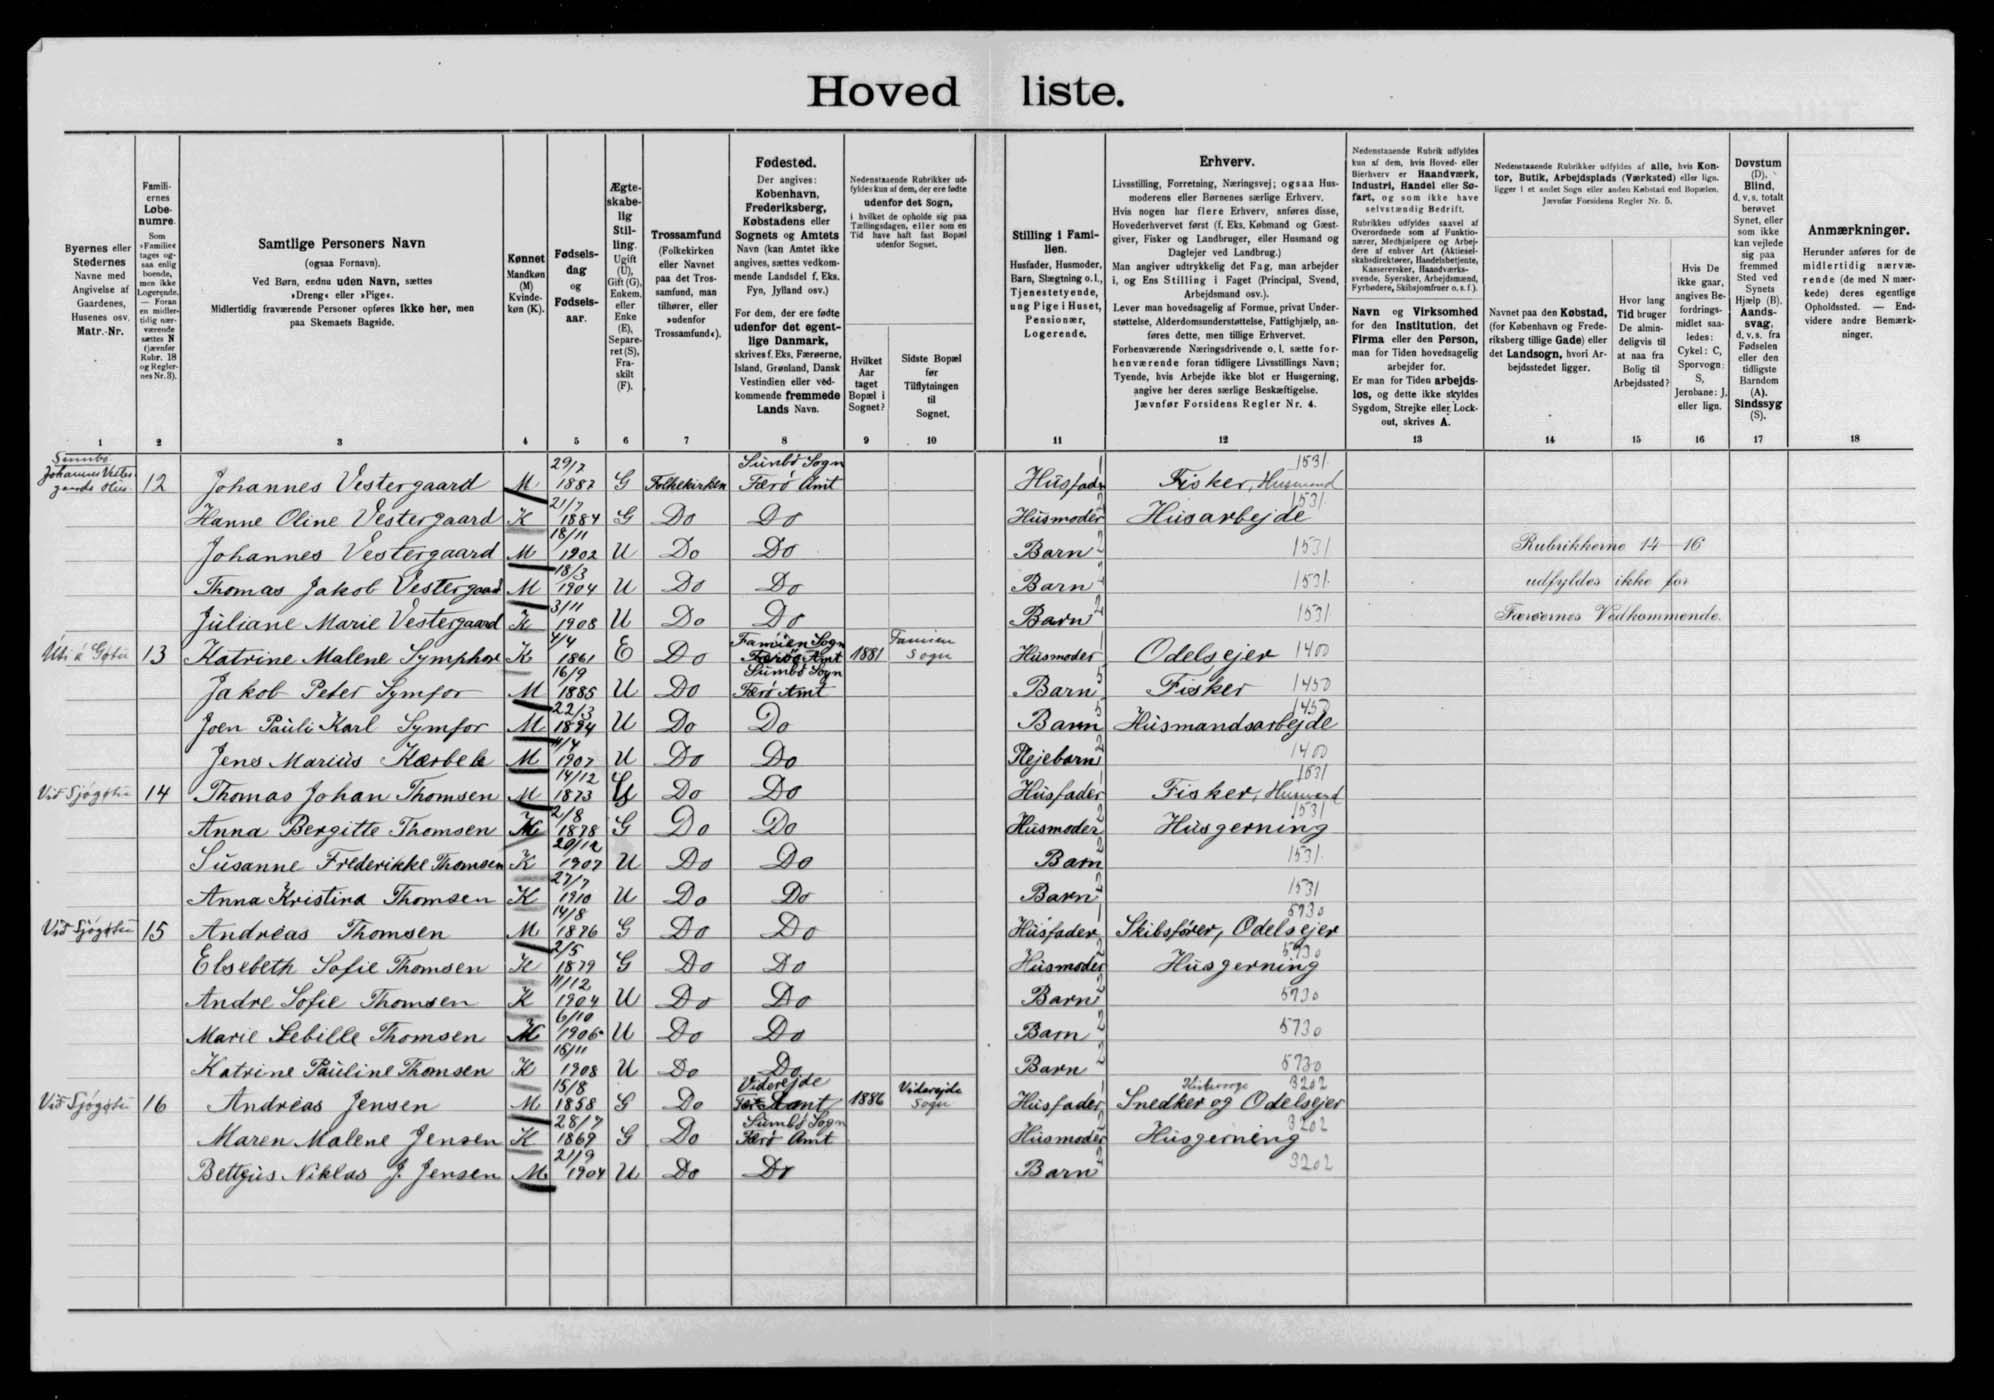 Hovedliste.
Byernes eller Stedernes Navne med Angivelse af Gaardenes, Husenes osv. Matr.-Nr.
Familiernes Løbenumre. Som »Familie« tages ogsaa enlig boende, men ikke Logerende. — Foran en midlertidig nærværende sættes N (jævnfør Rubr. 18 og Reglernes Nr. 3).
Samtlige Personers Navn
(ogsaa Fornavn).
Ved Børn, endnu uden Navn, sættes
»Dreng« eller »Pige«.
Midlertidig fraværende Personer opføres ikke her, men
paa Skemaets Bagside.
Kønnet Mandkøn (M) Kvindekøn (K).
Fødselsdag og Fødselsaar.
Ægteskabelig Stilling. Ugift (U), Gift (G), Enkem. eller Enke (E), Separeret (S), Fraskilt (F).
Trossamfund (Folkekirken eller Navnet paa det Trossamfund, man tilhører, eller »udenfor Trossamfund«).
Fødested.
Der angives: København, Frederiksberg, Købstadens eller Sognets og Amtets Navn (kan Amtet ikke angives, sættes vedkommende Landsdel f. Eks. Fyn, Jylland osv.)
For dem, der ere fødte udenfor det egentlige Danmark, skrives f. Eks. Færøerne, Island, Grønland, Dansk Vestindien eller vedkommende fremmede Lands Navn.
Nedenstaaende Rubrikker udfyldes kun af dem, der ere fødte udenfor det Sogn, i hvilket de opholde sig paa Tællingsdagen, eller som en Tid have haft fast Bopæl udenfor Sognet.
Hvilket Aar taget Bopæl i Sognet?
Sidste Bopæl før Tilflytningen til Sognet.
Stilling i Familien. Husfader, Husmoder, Barn, Slægtning o. l., Tjenestetyende, ung Pige i Huset, Pensionær, Logerende.
Erhverv.
Livsstilling, Forretning, Næringsvej; ogsaa Husmoderens eller Børnenes særlige Erhverv.
Hvis nogen har flere Erhverv, anføres disse, Hovederhvervet først (f. Eks. Købmand og Gæstgiver, Fisker og Landbruger, eller Husmand og Daglejer ved Landbrug.)
Man angiver udtrykkelig det Fag, man arbejder i, og Ens Stilling i Faget (Principal, Svend, Arbejdsmand osv.).
Lever man hovedsagelig af Formue, privat Understøttelse, Alderdomsunderstøttelse, Fattighjælp, anføres dette, men tillige Erhvervet.
Forhenværende Næringsdrivende o. l. sætte forhenværende foran tidligere Livsstillings Navn; Tyende, hvis Arbejde ikke blot er Husgerning, angive her deres særlige Beskæftigelse.
Jævnfør Forsidens Regler Nr. 4.
Nedenstaaende Rubrik udfyldes kun af dem, hvis Hoved- eller Bierhverv er Haandværk, Industri, Handel eller Søfart, og som ikke have selvstændig Bedrift.
Rubrikken udfyldes saavel af Overordnede som af Funktionærer, Medhjælpere og Arbejdere af enhver Art (Aktieselskabsdirektører, Handelsbetjente, Kasserersker, Haandværkssvende, Syersker, Arbejdsmænd, Fyrbødere, Skibsjomfruer o. s. f.).
Navn og Virksomhed for den Institution, det Firma eller den Person, man for Tiden hovedsagelig arbejder for.
Er man for Tiden arbejdsløs, og dette ikke skyldes Sygdom, Strejke eller Lockout, skrives A.
Nedenstaaende Rubrikker udfyldes af alle, hvis Kontor, Butik, Arbejdsplads (Værksted) eller lign. ligger i et andet Sogn eller anden Købstad end Bopælen.
Jævnfør Forsidens Regler Nr. 5.
Navnet paa den Købstad, (for København og Frederiksberg tillige Gade) eller det Landsogn, hvori Arbejdsstedet ligger.
Hvor lang Tid bruger De almindeligvis til at naa fra Bolig til Arbejdssted?
Hvis De ikke gaar, angives Befordringsmidlet saaledes: Cykel: C, Sporvogn: S, Jernbane: J, eller lign.
Døvstum (D). Blind, d. v. s. totalt berøvet Synet, eller som ikke kan vejlede sig paa fremmed Sted ved Synets Hjælp (B). Aandssvag, d. v. s. fra Fødselen eller den tidligste Barndom (A). Sindssyg (S).
Anmærkninger.
Herunder anføres for de midlertidig nærværende (de med N mærkede) deres egentlige Opholdssted. — Endvidere andre Bemærkninger.
1 2 3 4 5 6 7 8 9 10 11 12 13 14 15 16 17 18
Sumbø
Johannes Vestergaards Hus 12 Johannes Vestergaard M 29/7 1887 G Folkekirken Sunbø Sogn Færø Amt Husfader 1 Fisker, Husmand 1531
Hanne Oline Vestergaard K 21/7 1884 G Do Do Husmoder 2 Husarbejde 1531
Johannes Vestergaard M 18/11 1902 U Do Do Barn 2 1531 Rubrikkerne 14-16
Thomas Jakob Vestergaard M 18/3 1904 U Do Do Barn 2 1531 udfyldes ikke for
Juliane Marie Vestergaard K 3/11 1908 U Do Do Barn 2 1531 Færøernes Vedkommende.
13 Katrine Malene Symphor K 4/4 1861 E Do Famien Sogn Færø Amt 1881 Famien Sogn Husmoder 1 Odelsejer 1400
Jakob Peter Symfor M 16/9 1885 U Do Sumbø Sogn Færø Amt Barn 5 Fisker 1450
Joen Pauli Karl Symfor M 22/3 1894 U Do Do Barn 5 Husmandsarbejde 1450
Jens Marius Kærbek M 11/4 1907 U Do Do Plejebarn 2 1400
Við Sjógøtu 14 Thomas Johan Thomsen M 14/12 1873 G Do Do Husfader 1 Fisker, Husmand 1531
Anna Bergitte Thomsen K 2/8 1878 G Do Do Husmoder 2 Husgerning 1531
Susanne Frederikke Thomsen K 20/12 1907 U Do Do Barn 2 1531
Anna Kristina Thomsen K 27/7 1910 U Do Do Barn 2 1531
Við Sjógøtu 15 Andreas Thomsen M 14/8 1876 G Do Do Husfader 1 Skibsfører, Odelsejer 5730
Elsebeth Sofie Thomsen K 2/5 1879 G Do Do Husmoder 2 Husgerning 5730
Andre Sofie Thomsen K 11/12 1904 U Do Do Barn 2 5730
Marie Sebille Thomsen K 6/10 1906 U Do Do Barn 2 5730
Katrine Pauline Thomsen K 15/11 1908 U Do Do Barn 2 5730
Við Sjógøtu 16 Andreas Jensen M 15/8 1858 G Do Viderejde Fær Amt 1886 Viderejde Sogn Husfader 1 Snedker og Odelsejer 3202
Maren Malene Jensen K 28/7 1869 G Do Sumbø Sogn Færø Amt Husmoder 2 Husgerning 3202
Bettgus Niklas J. Jensen M 21/9 1904 U Do Do Barn 2 3202